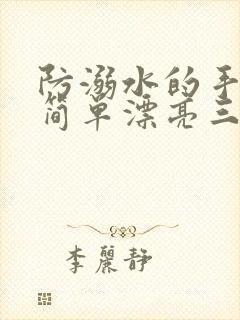 防溺水的手
简单漂亮三
李麗静